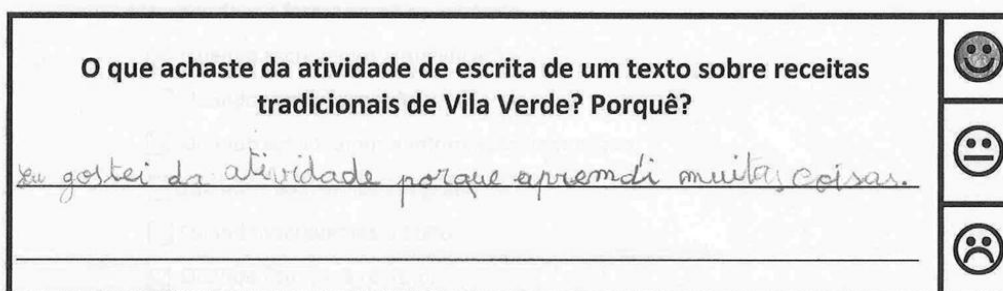 O que achaste da atividade de escrita de um texto sobre receitas
tradicionais de Vila Verde? Porquê?
Eu gostei da atividade porque apremdi muitas coisas.